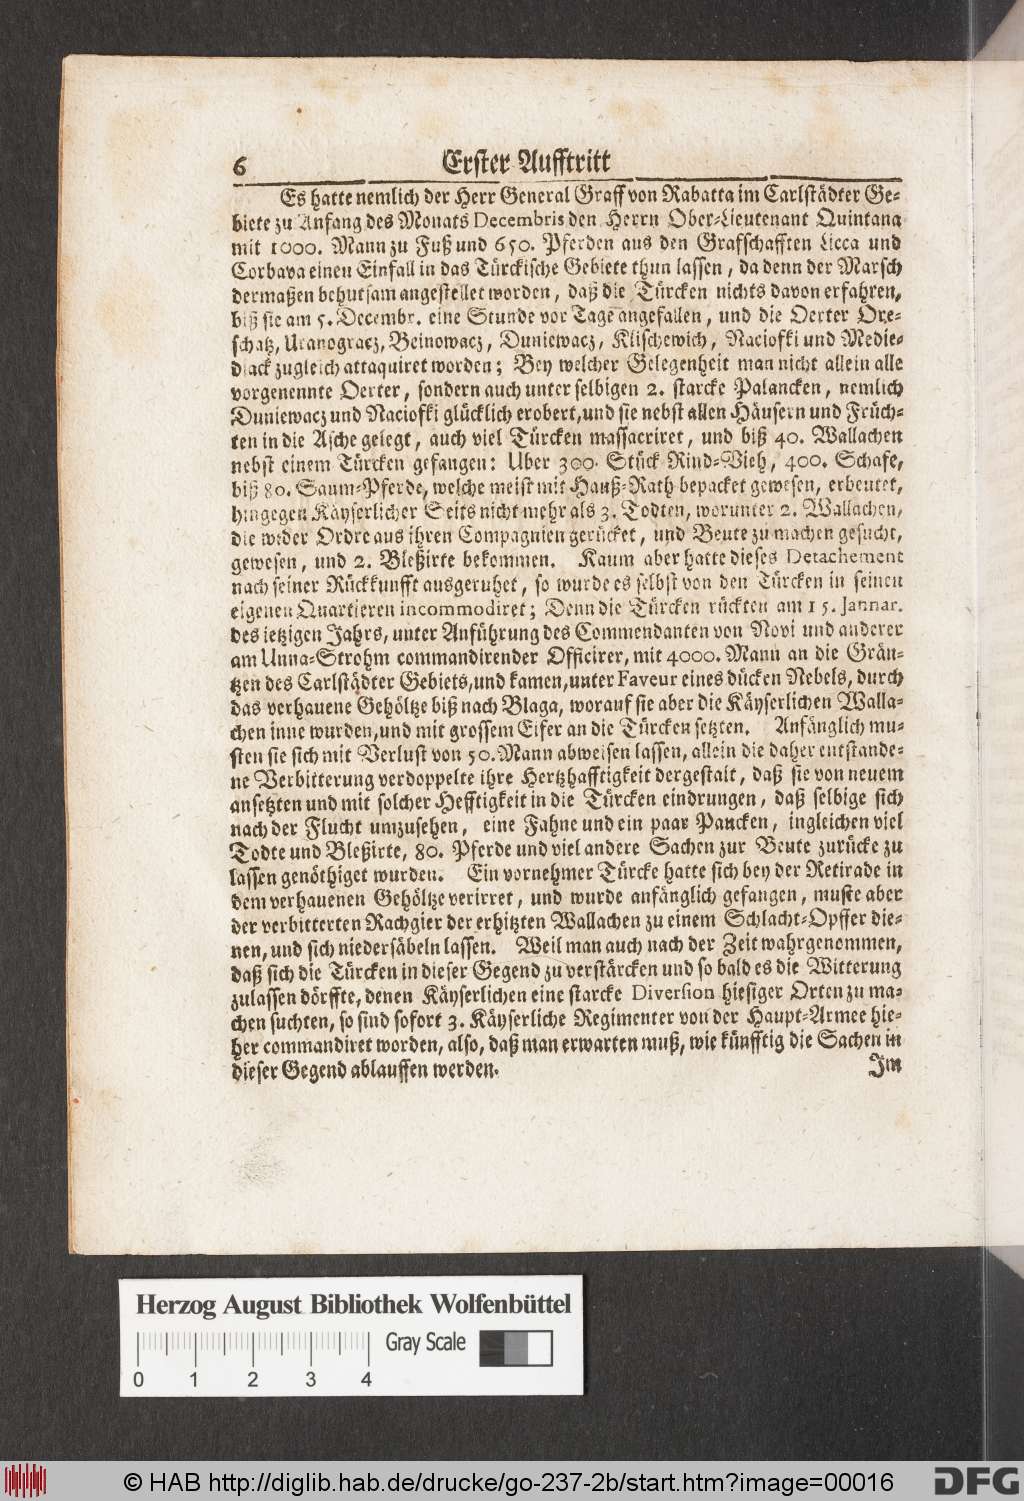 6 Erster Aufftritt
Es hatte nemlich der Herr General Graff von Rabatta im Carlstädter Ge-
biete zu Anfang des Monats Decembris den Herrn Ober-Lieutenant Quintana
mit 1000. Mann zu Fuß und 650. Pferden aus den Grafschafften Licca und
Corbava einen Einfall in das Türckische Gebiete thun lassen, da denn der Marsch
dermaßen behutsam angestellet worden, daß die Türcken nichts davon erfahren,
biß sie am 5. Decembr. eine Stunde vor Tage angefallen, und die Oerter Ore-
schatz, Uranogracz, Beinowacz, Duniewacz, Klischewich, Naciofki und Medie-
diack zugleich attaquiret worden; Bey welcher Gelegenheit man nicht allein alle
vorgenennte Oerter, sondern auch unter selbigen 2. starcke Palancken, nemlich
Duniewacz und Naciofki glücklich erobert, und sie nebst allen Häusern und Früch-
ten in die Asche gelegt, auch viel Türcken massacriret, und biß 40. Wallachen
nebst einem Türcken gefangen: Uber 300. Stück Rind-Vieh, 400. Schafe,
biß 80. Saum-Pferde, welche meist mit Hauß-Rath bepacket gewesen, erbeutet,
hingegen Käyserlicher Seits nicht mehr als 3. Todten, worunter 2. Wallachen,
die wider Ordre aus ihren Compagnien gerücket, und Beute zu machen gesucht,
gewesen, und 2. Bleßirte bekommen. Kaum aber hatte dieses Detachement
nach seiner Rückkunfft ausgeruhet, so wurde es selbst von den Türcken in seinen
eigenen Quartieren incommodiret; Denn die Türcken rückten am 15. Januar.
des ietzigen Jahrs, unter Anführung des Commendanten von Novi und anderer
am Unna-Strohm commandirender Officirer, mit 4000. Mann an die Grän-
tzen des Carlstädter Gebiets, und kamen, unter Faveur eines dücken Nebels, durch
das verhauene Gehöltze biß nach Blaga, worauf sie aber die Käyserlichen Walla-
chen inne wurden, und mit grossem Eifer an die Türcken setzten. Anfänglich mu-
sten sie sich mit Verlust von 50. Mann abweisen lassen, allein die daher entstande-
ne Verbitterung verdoppelte ihre Hertzhafftigkeit dergestalt, daß sie von neuem
ansetzten und mit solcher Hefftigkeit in die Türcken eindrungen, daß selbige sich
nach der Flucht umzusehen, eine Fahne und ein paar Paucken, ingleichen viel
Todte und Bleßirte, 80. Pferde und viel andere Sachen zur Beute zurücke zu
lassen genöthiget wurden. Ein vornehmer Türcke hatte sich bey der Retirade in
dem verhauenen Gehöltze verirret, und wurde anfänglich gefangen, muste aber
der verbitterten Rachgier der erhitzten Wallachen zu einem Schlacht-Opffer die-
nen, und sich niedersäbeln lassen. Weil man auch nach der Zeit wahrgenommen,
daß sich die Türcken in dieser Gegend zu verstärcken und so bald es die Witterung
zulassen dörffte, denen Käyserlichen eine starcke Diversion hiesiger Orten zu ma-
chen suchten, so sind sofort 3. Käyserliche Regimenter von der Haupt-Armee hie-
her commandiret worden, also, daß man erwarten muß, wie künfftig die Sachen in
dieser Gegend ablauffen werden.
Im
Herzog August Bibliothek Wolfenbüttel
Gray Scale
0 1 2 3 4
© HAB http://diglib.hab.de/drucke/go-237-2b/start.htm?image=00016
DFG